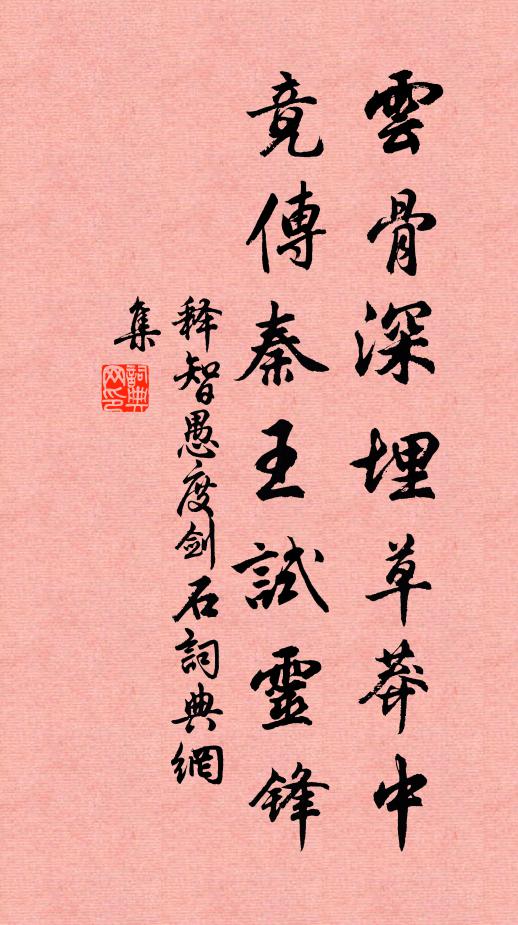 雲骨深埋草莽中
竟傳秦王試靈鋒
释智愚度剑石詞典網
集
詞典網印